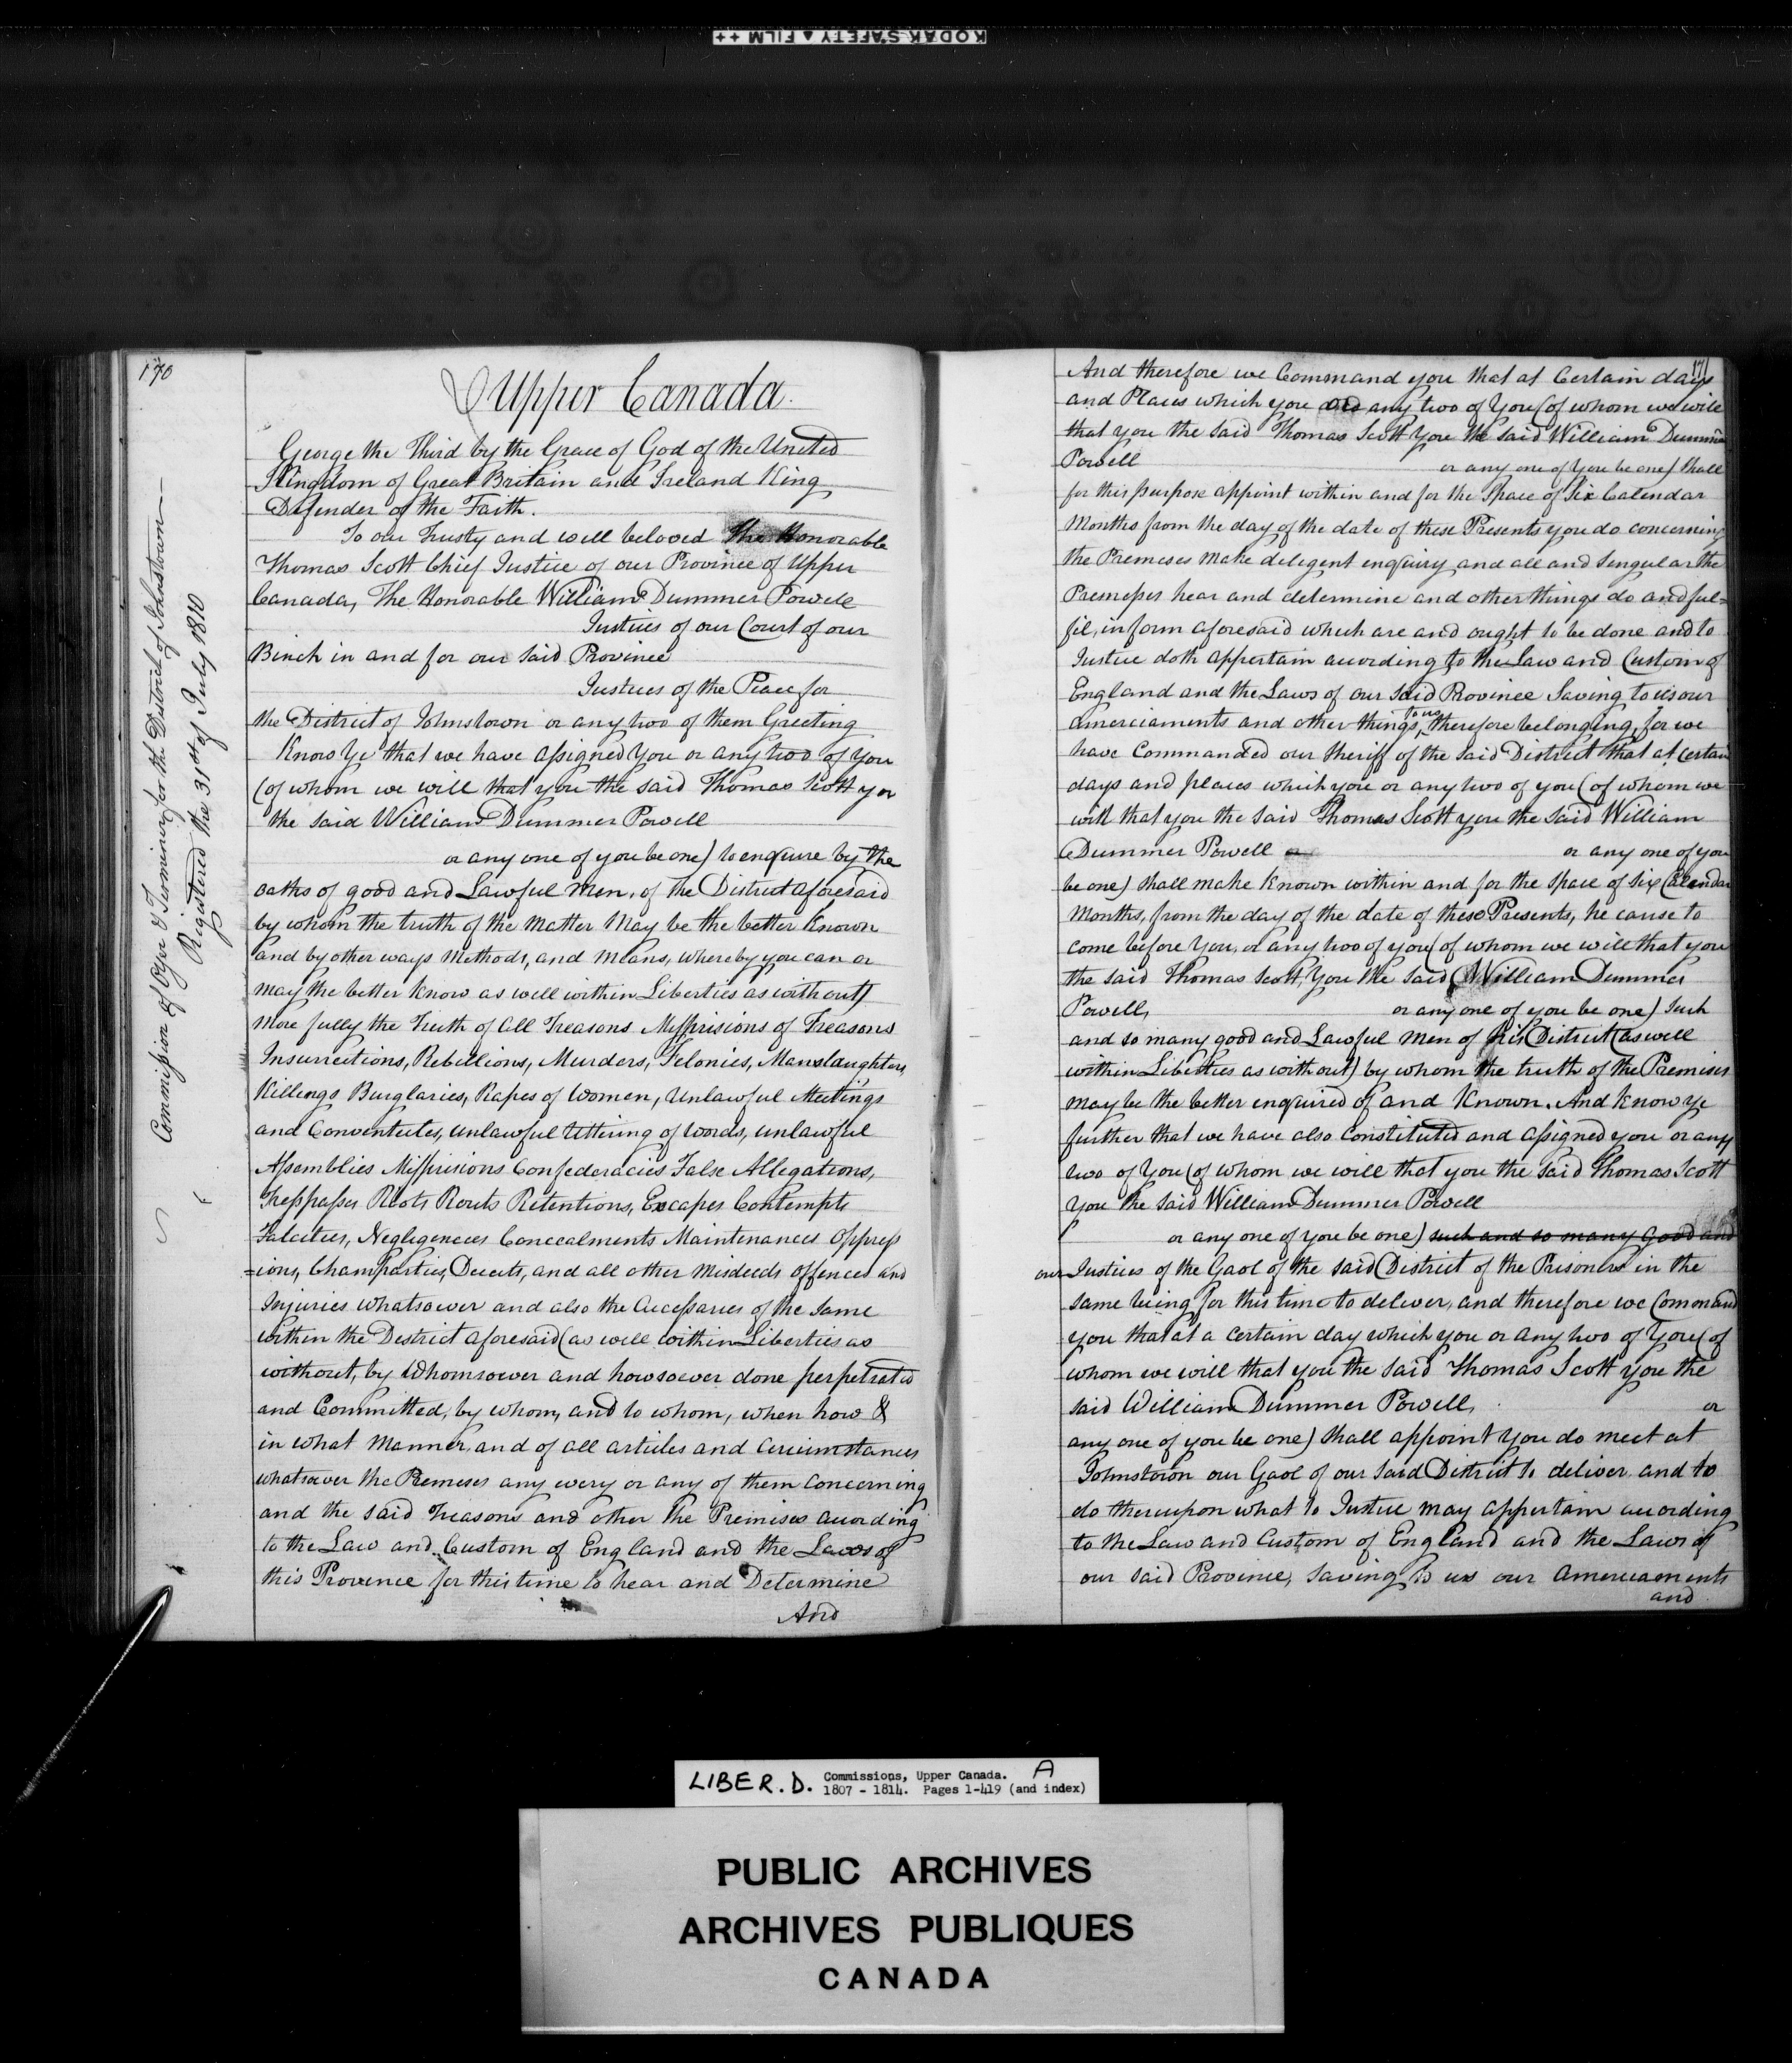 KODAK SAFETY ▲ FILM ++
170
Commission of Oyer & Terminer for the District of Johnstown
Registered the 31st of July 1810
Upper Canada.
George the Third by the Grace of God of the United
Kingdom of Great Britain and Ireland King
Defender of the Faith.
To our Trusty and well beloved The Honorable
Thomas Scott Chief Justice of our Province of Upper
Canada, The Honorable William Dummer Powell
Justices of our Court of our
Binch in and for our said Province
Justices of the Peace for
the District of Johnstown or any two of them Greeting
Know Ye that we have assigned You or any two of you
(of whom we will that you the said Thomas Scott you
the said William Dummer Powell
or any one of you be one) to enquire by the
oaths of good and Lawful Men, of the District aforesaid
by whom the truth of the matter May be the better Known
and by other ways Methods, and Means, whereby you can or
may the better know as well within Liberties as without)
more fully the Truth of all Treasons Misprisions of Treasons
Insurrections, Rebellions, Murders, Felonies, Manslaughters,
Killings Burglaries, Rapes of Women, Unlawful Meetings
and Conventicles, unlawful Uttering of words, unlawful
Assemblies Misprisions Confederacies False Allegations,
Trespasses Riots Routs Retentions, Escapes Contempts
Falcities, Negligences Concealments Maintenances Oppress
=ions, Champarties, Deceits, and all other Misdeeds offences and
Injuries whatsoever and also the Accessaries of the same
within the District aforesaid (as well within Liberties as
without, by Whomsoever and howsoever done perpetrated
and Committed, by whom, and to whom, when how &
in what Manner, and of all articles and Circumstances
whatsoever the Premeses any every or any of them concerning
and the said Treasons and other the Premises according
to the Law and Custom of England and the Laws of
this Province for this time to hear and Determine
And
171
And therefore we Command you that at Certain days
and Places which you and any two of You (of whom we will
that you the said Thomas Scott You the said William Dummer
Powell or any one of you be one) shall
for this purpose appoint within and for the Space of Six Calendar
Months from the day of the date of these Presents you do concerning
the Premeses make deligent enquiry and all and Singular the
Premeses hear and determine and other things do and ful=
fil, in form aforesaid which are and ought to be done and to
Justice doth appertain according to the Law and Custom of
England and the Laws of our said Province Saving to us our
amerciaments and other things, to us therefore belonging, for we
have Commanded our Sheriff of the said District that at certain
days and places which you or any two of you (of whom we
will that you the said Thomas Scott you the said William
Dummer Powell or any one of you
be one) shall make known within and for the Space of Six Calendar
Months, from the day of the date of these Presents, he cause to
come before You, or any two of you (of whom we will that you
the said Thomas Scott, You the said William Dummer
Powell, or any one of you be one) such
and so many good and Lawful Men of his District (as well
within Liberties as without) by whom the truth of the Premises
may be the better enquired of and Known. And Know ye
further that we have also Constituted and assigned you or any
two of You (of whom we will that you the said Thomas Scott
You the said William Dummer Powell
or any one of you be one) such and so many good and
our Justices of the Gaol of the said District of the Prisoners in the
same being for this time to deliver, and therefore we Command
you that at a certain day which you or any two of You (of
whom we will that you the said Thomas Scott you the
said William Dummer Powell, or
any one of you be one) shall appoint you do meet at
Johnstown our Gaol of our said District to deliver and to
do thereupon what to Justice may appertain according
to the Law and Custom of England and the Laws of
our said Province, Saving to us our Amerciaments
and
LIBER. D. Commissions, Upper Canada. A
1807 - 1814. Pages 1-419 (and index)
PUBLIC ARCHIVES
ARCHIVES PUBLIQUES
CANADA